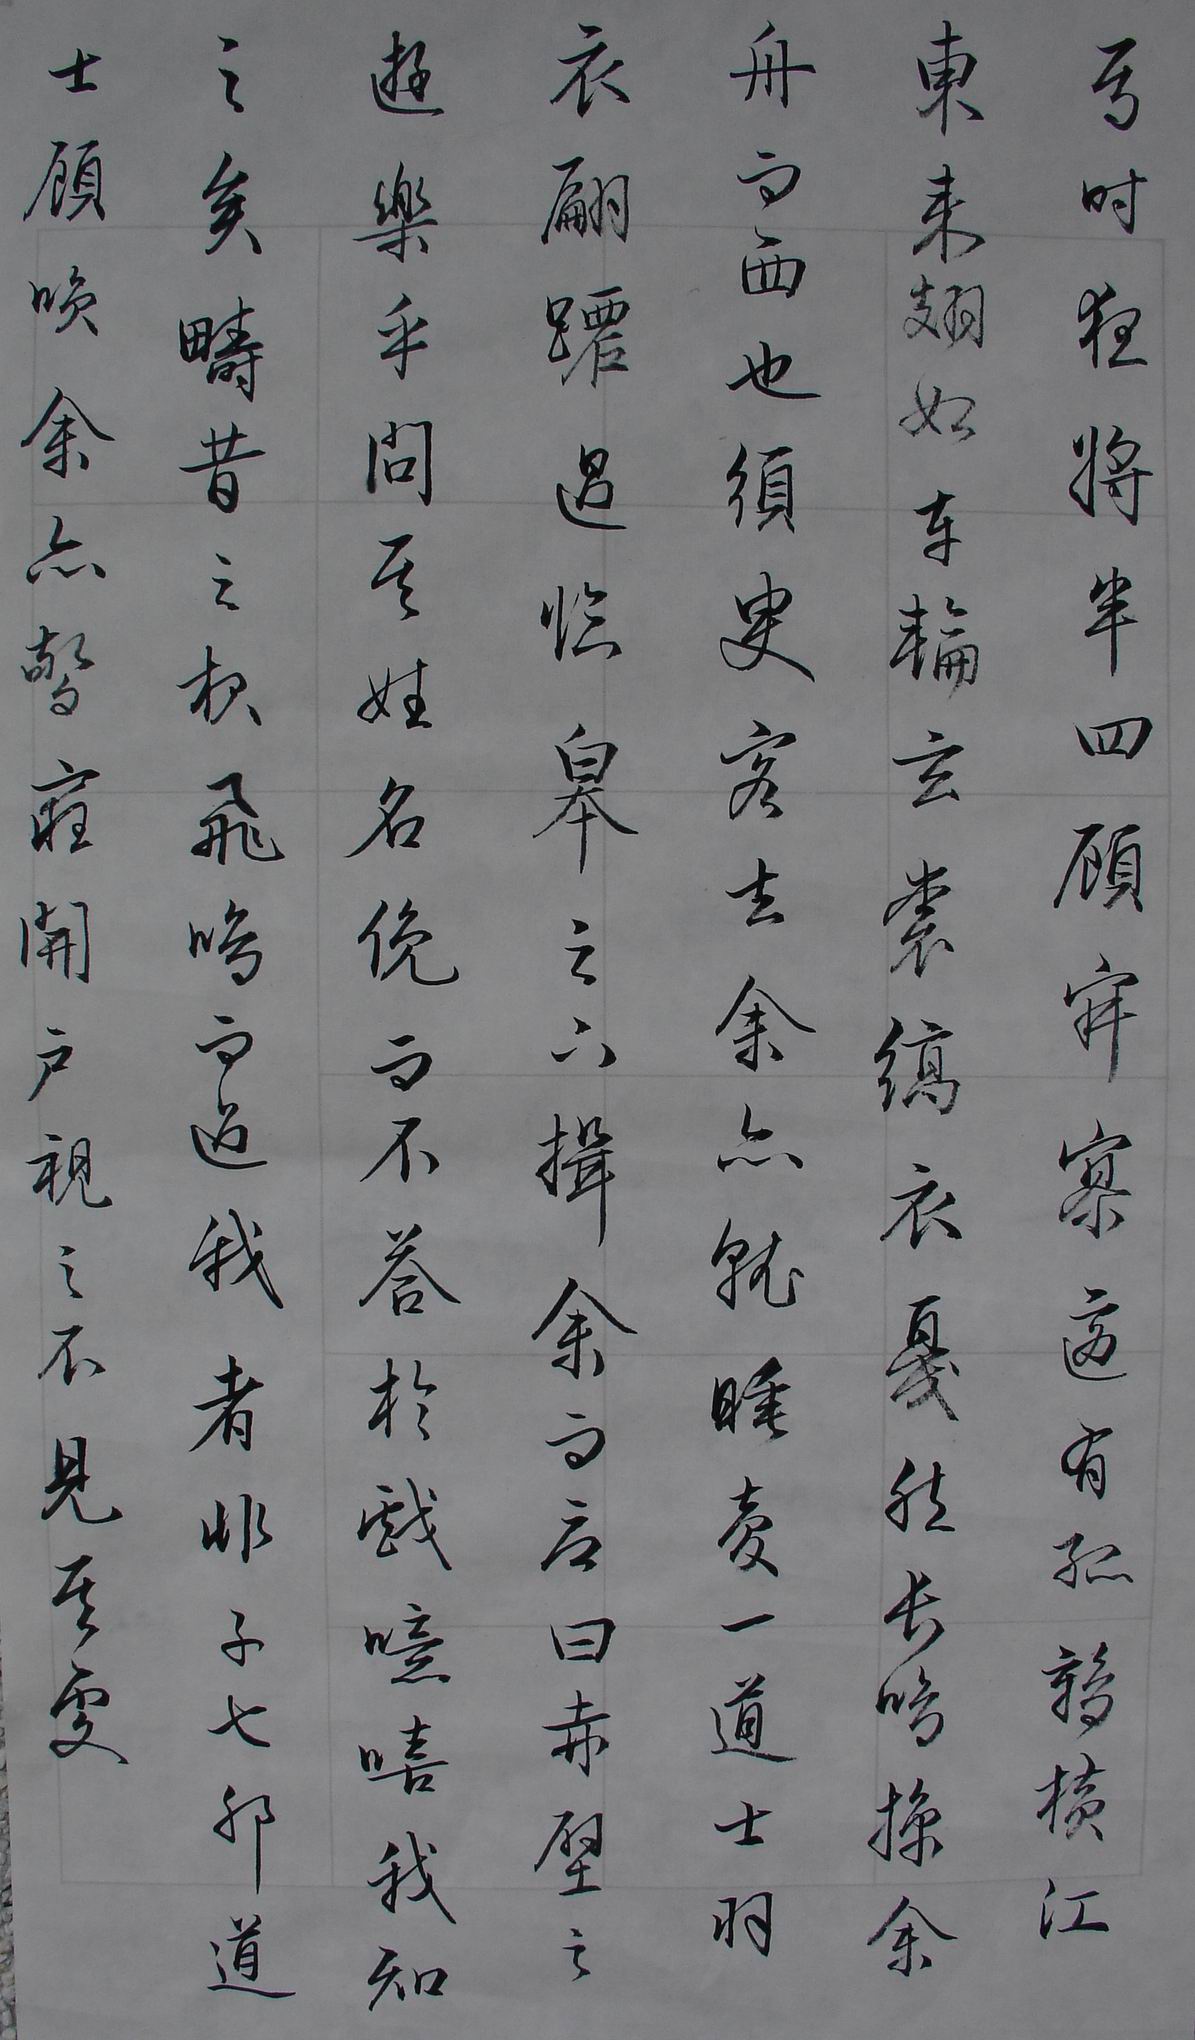 焉时夜将半四顾寂寥适有孤鹤横江
東来翅如车輪玄裳縞衣戛然长鸣掠余
舟而西也須臾客去余亦就睡夢一道士羽
衣翩躚過临皋之下揖余而言曰赤壁之
遊樂乎問其姓名俛而不答於戲噫嘻我知
之矣疇昔之夜飛鸣而過我者非子也邪道
士顾唤余亦驚寤開户視之不見其處